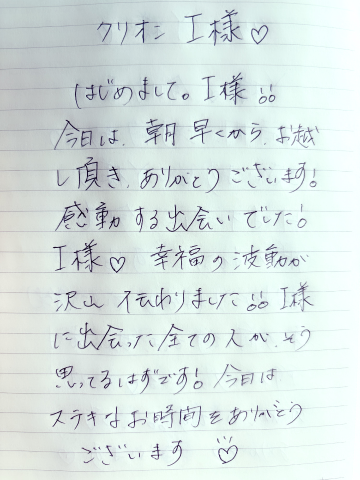 クリオネ I様♡
はじめまして。I様!!
今日は、朝早くから、お越
し頂き、ありがとうございます!
感動する出会いでした!
I様♡ 幸福の波動が
沢山伝わりました!! I様
に出会った全ての人が、そう
思ってるはずです! 今日は
ステキなお時間をありがとう
ございます ♡